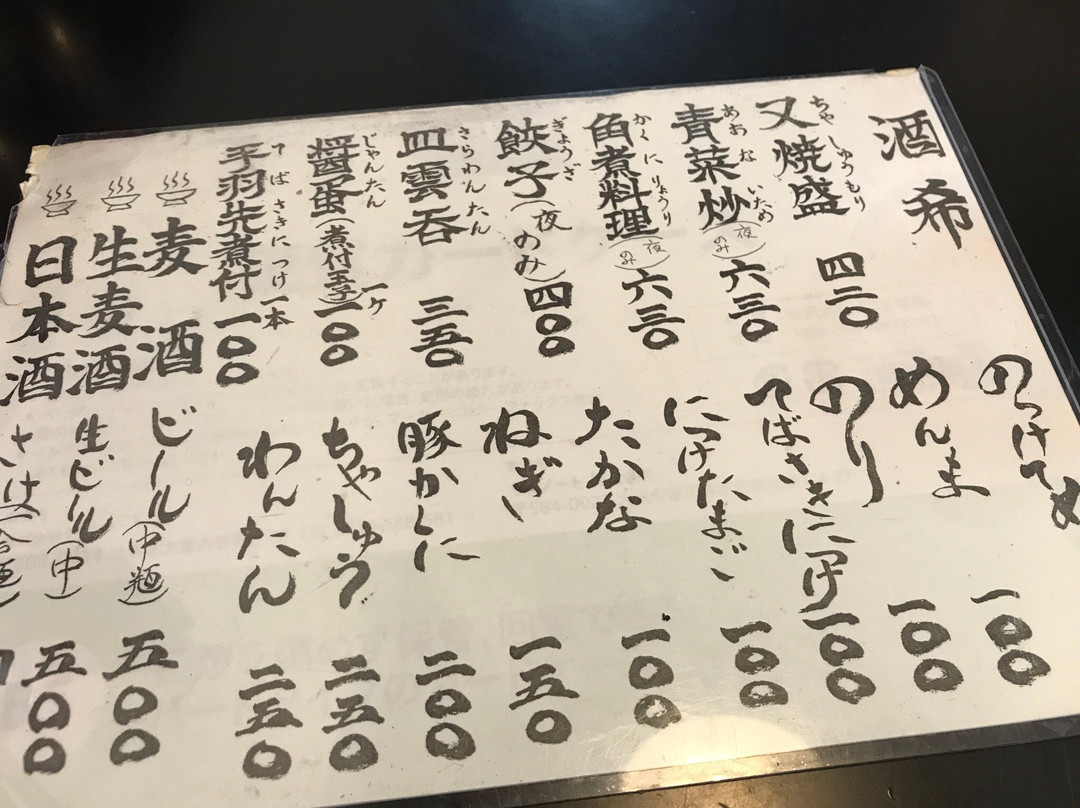 酒希
ちゃしゅうもり
叉焼盛 四二〇
あおな いため
青菜炒(夜のみ) 六三〇
かくにりょうり
角煮料理(夜のみ) 六三〇
ぎょうざ
餃子(夜のみ) 四〇〇
さらわんたん
皿雲呑 三五〇
じゃんたん
醤蛋(煮付玉子)一ケ 一〇〇
てばさきにつけ
手羽先煮付 一本 一〇〇
麦酒 ビール(中瓶) 五〇〇
生麦酒 生ビール(中) 五〇〇
日本酒 さけ
のっけてめ
一〇〇
めんま 一〇〇
のり
てばさきにつけ 一〇〇
につけたまご 一〇〇
たかな 一〇〇
ねぎ 一五〇
豚かくに 二〇〇
ちゃしゅう 二五〇
わんたん 二五〇